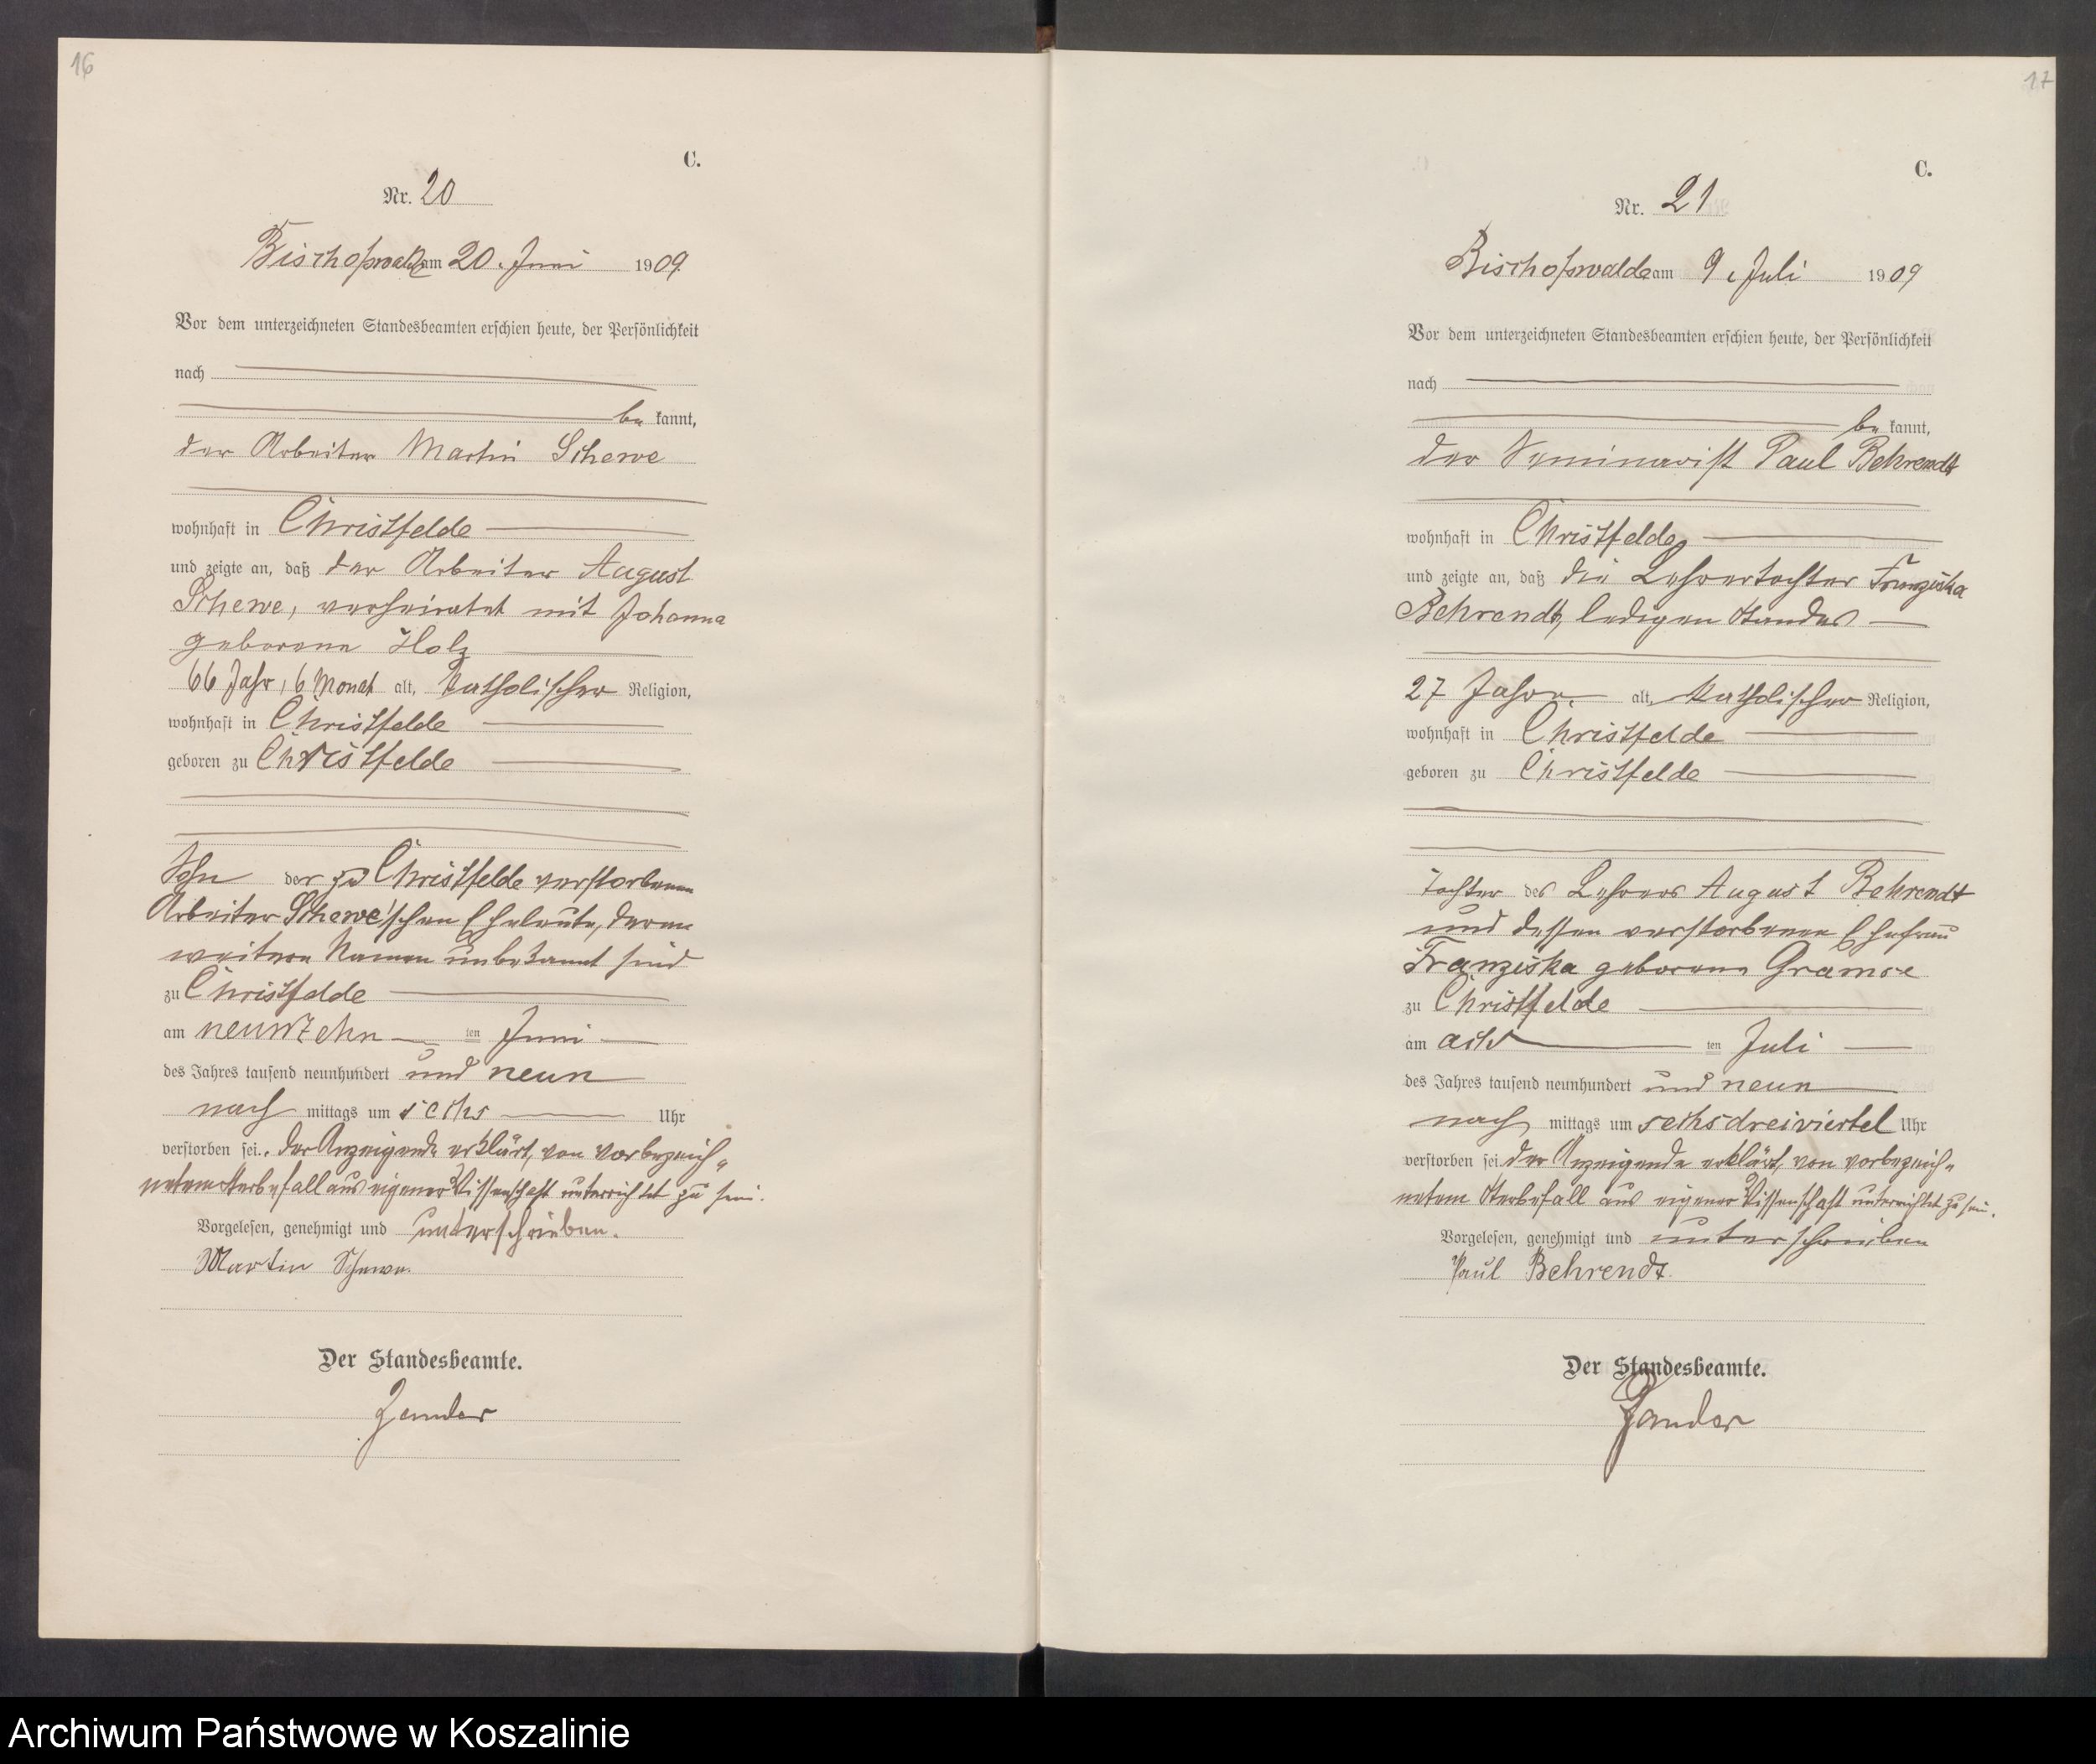 16
C.
Nr. 20
Bischofswalde am 20. Juni 1909.
Vor dem unterzeichneten Standesbeamten erschien heute, der Persönlichkeit
nach
be kannt,
der Arbeiter Martin Schewe
wohnhaft in Christfelde
und zeigte an, daß der Arbeiter August
Schewe, verheiratet mit Johanna
geborene Holz
66 Jahr, 6 Monat alt, katholischer Religion,
wohnhaft in Christfelde
geboren zu Christfelde
Sohn der zu Christfelde verstorbenen
Arbeiter Schewe'schen Eheleute, deren
weitere Namen unbekannt sind
zu Christfelde
am neunzehn ten Juni
des Jahres tausend neunhundert und neun
nach mittags um sechs Uhr
verstorben sei. Der Anzeigende erklärt, von vorbezeich„
netem Sterbefall aus eigener Wissenschaft unterrichtet zu sein.
Vorgelesen, genehmigt und unterschrieben.
Martin Schewe.
Der Standesbeamte.
Zander
17
C.
Nr. 21
Bischofswalde am 9. Juli 1909
Vor dem unterzeichneten Standesbeamten erschien heute, der Persönlichkeit
nach
be kannt,
der Seminarist Paul Behrendt
wohnhaft in Christfelde
und zeigte an, daß die Lehrertochter Franziska
Behrendt, ledigen Standes
27 Jahre alt, katholischer Religion,
wohnhaft in Christfelde
geboren zu Christfelde
Tochter des Lehrers August Behrendt
und dessen verstorbenen Ehefrau
Franziska geborene Gramse
zu Christfelde
am acht ten Juli
des Jahres tausend neunhundert und neun
nach mittags um sechsdreiviertel Uhr
verstorben sei. Der Anzeigende erklärt, von vorbezeich„
netem Sterbefall aus eigener Wissenschaft unterrichtet zu sein.
Vorgelesen, genehmigt und unterschrieben
Paul Behrendt.
Der Standesbeamte.
Zander
Archiwum Państwowe w Koszalinie